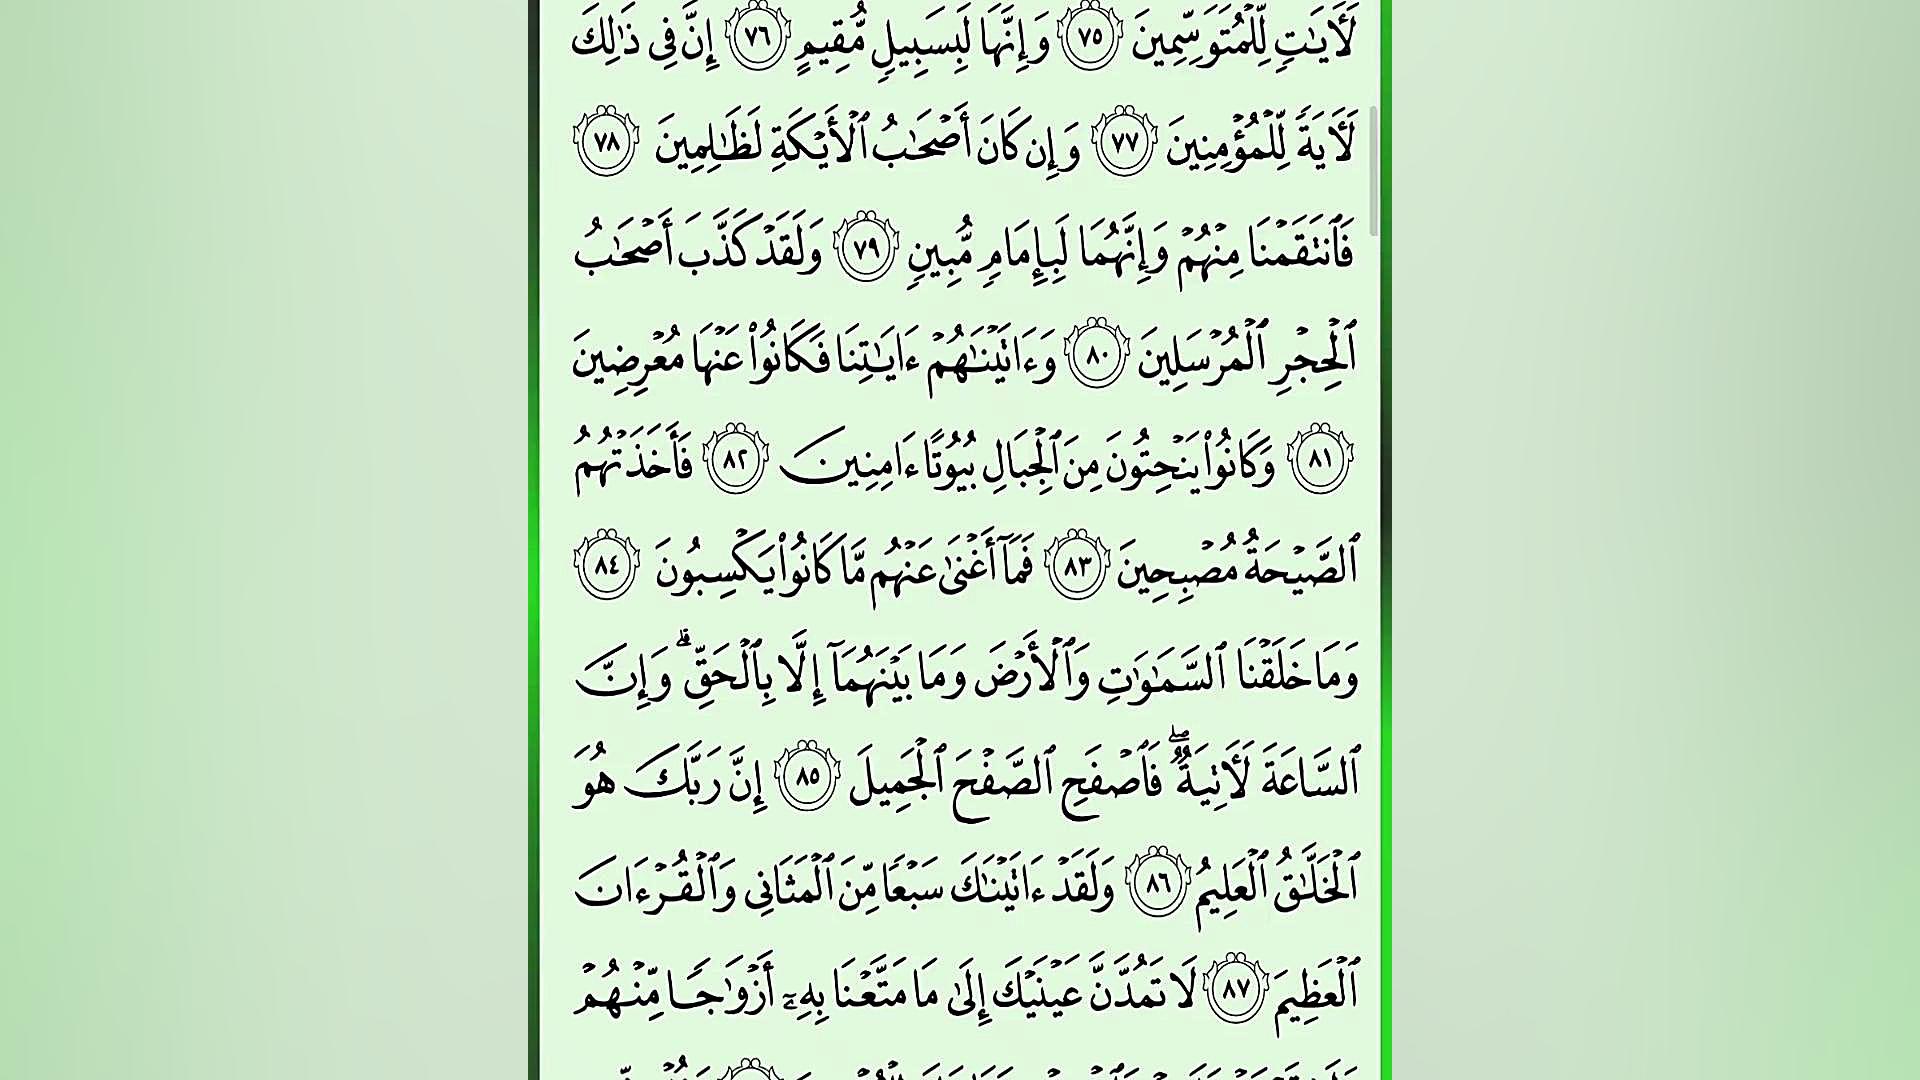 لَـَٔايَـٰتٍ لِّلْمُتَوَسِّمِينَ ٧٥ وَإِنَّهَا لَبِسَبِيلٍ مُّقِيمٍ ٧٦ إِنَّ فِى ذَٰلِكَ
لَـَٔايَةً لِّلْمُؤْمِنِينَ ٧٧ وَإِن كَانَ أَصْحَـٰبُ ٱلْأَيْكَةِ لَظَـٰلِمِينَ ٧٨
فَٱنتَقَمْنَا مِنْهُمْ وَإِنَّهُمَا لَبِإِمَامٍ مُّبِينٍ ٧٩ وَلَقَدْ كَذَّبَ أَصْحَـٰبُ
ٱلْحِجْرِ ٱلْمُرْسَلِينَ ٨٠ وَءَاتَيْنَـٰهُمْ ءَايَـٰتِنَا فَكَانُوا۟ عَنْهَا مُعْرِضِينَ
٨١ وَكَانُوا۟ يَنْحِتُونَ مِنَ ٱلْجِبَالِ بُيُوتًا ءَامِنِينَ ٨٢ فَأَخَذَتْهُمُ
ٱلصَّيْحَةُ مُصْبِحِينَ ٨٣ فَمَآ أَغْنَىٰ عَنْهُم مَّا كَانُوا۟ يَكْسِبُونَ ٨٤
وَمَا خَلَقْنَا ٱلسَّمَـٰوَٰتِ وَٱلْأَرْضَ وَمَا بَيْنَهُمَآ إِلَّا بِٱلْحَقِّ ۗ وَإِنَّ
ٱلسَّاعَةَ لَـَٔاتِيَةٌ ۖ فَٱصْفَحِ ٱلصَّفْحَ ٱلْجَمِيلَ ٨٥ إِنَّ رَبَّكَ هُوَ
ٱلْخَلَّـٰقُ ٱلْعَلِيمُ ٨٦ وَلَقَدْ ءَاتَيْنَـٰكَ سَبْعًا مِّنَ ٱلْمَثَانِى وَٱلْقُرْءَانَ
ٱلْعَظِيمَ ٨٧ لَا تَمُدَّنَّ عَيْنَيْكَ إِلَىٰ مَا مَتَّعْنَا بِهِۦٓ أَزْوَٰجًا مِّنْهُمْ